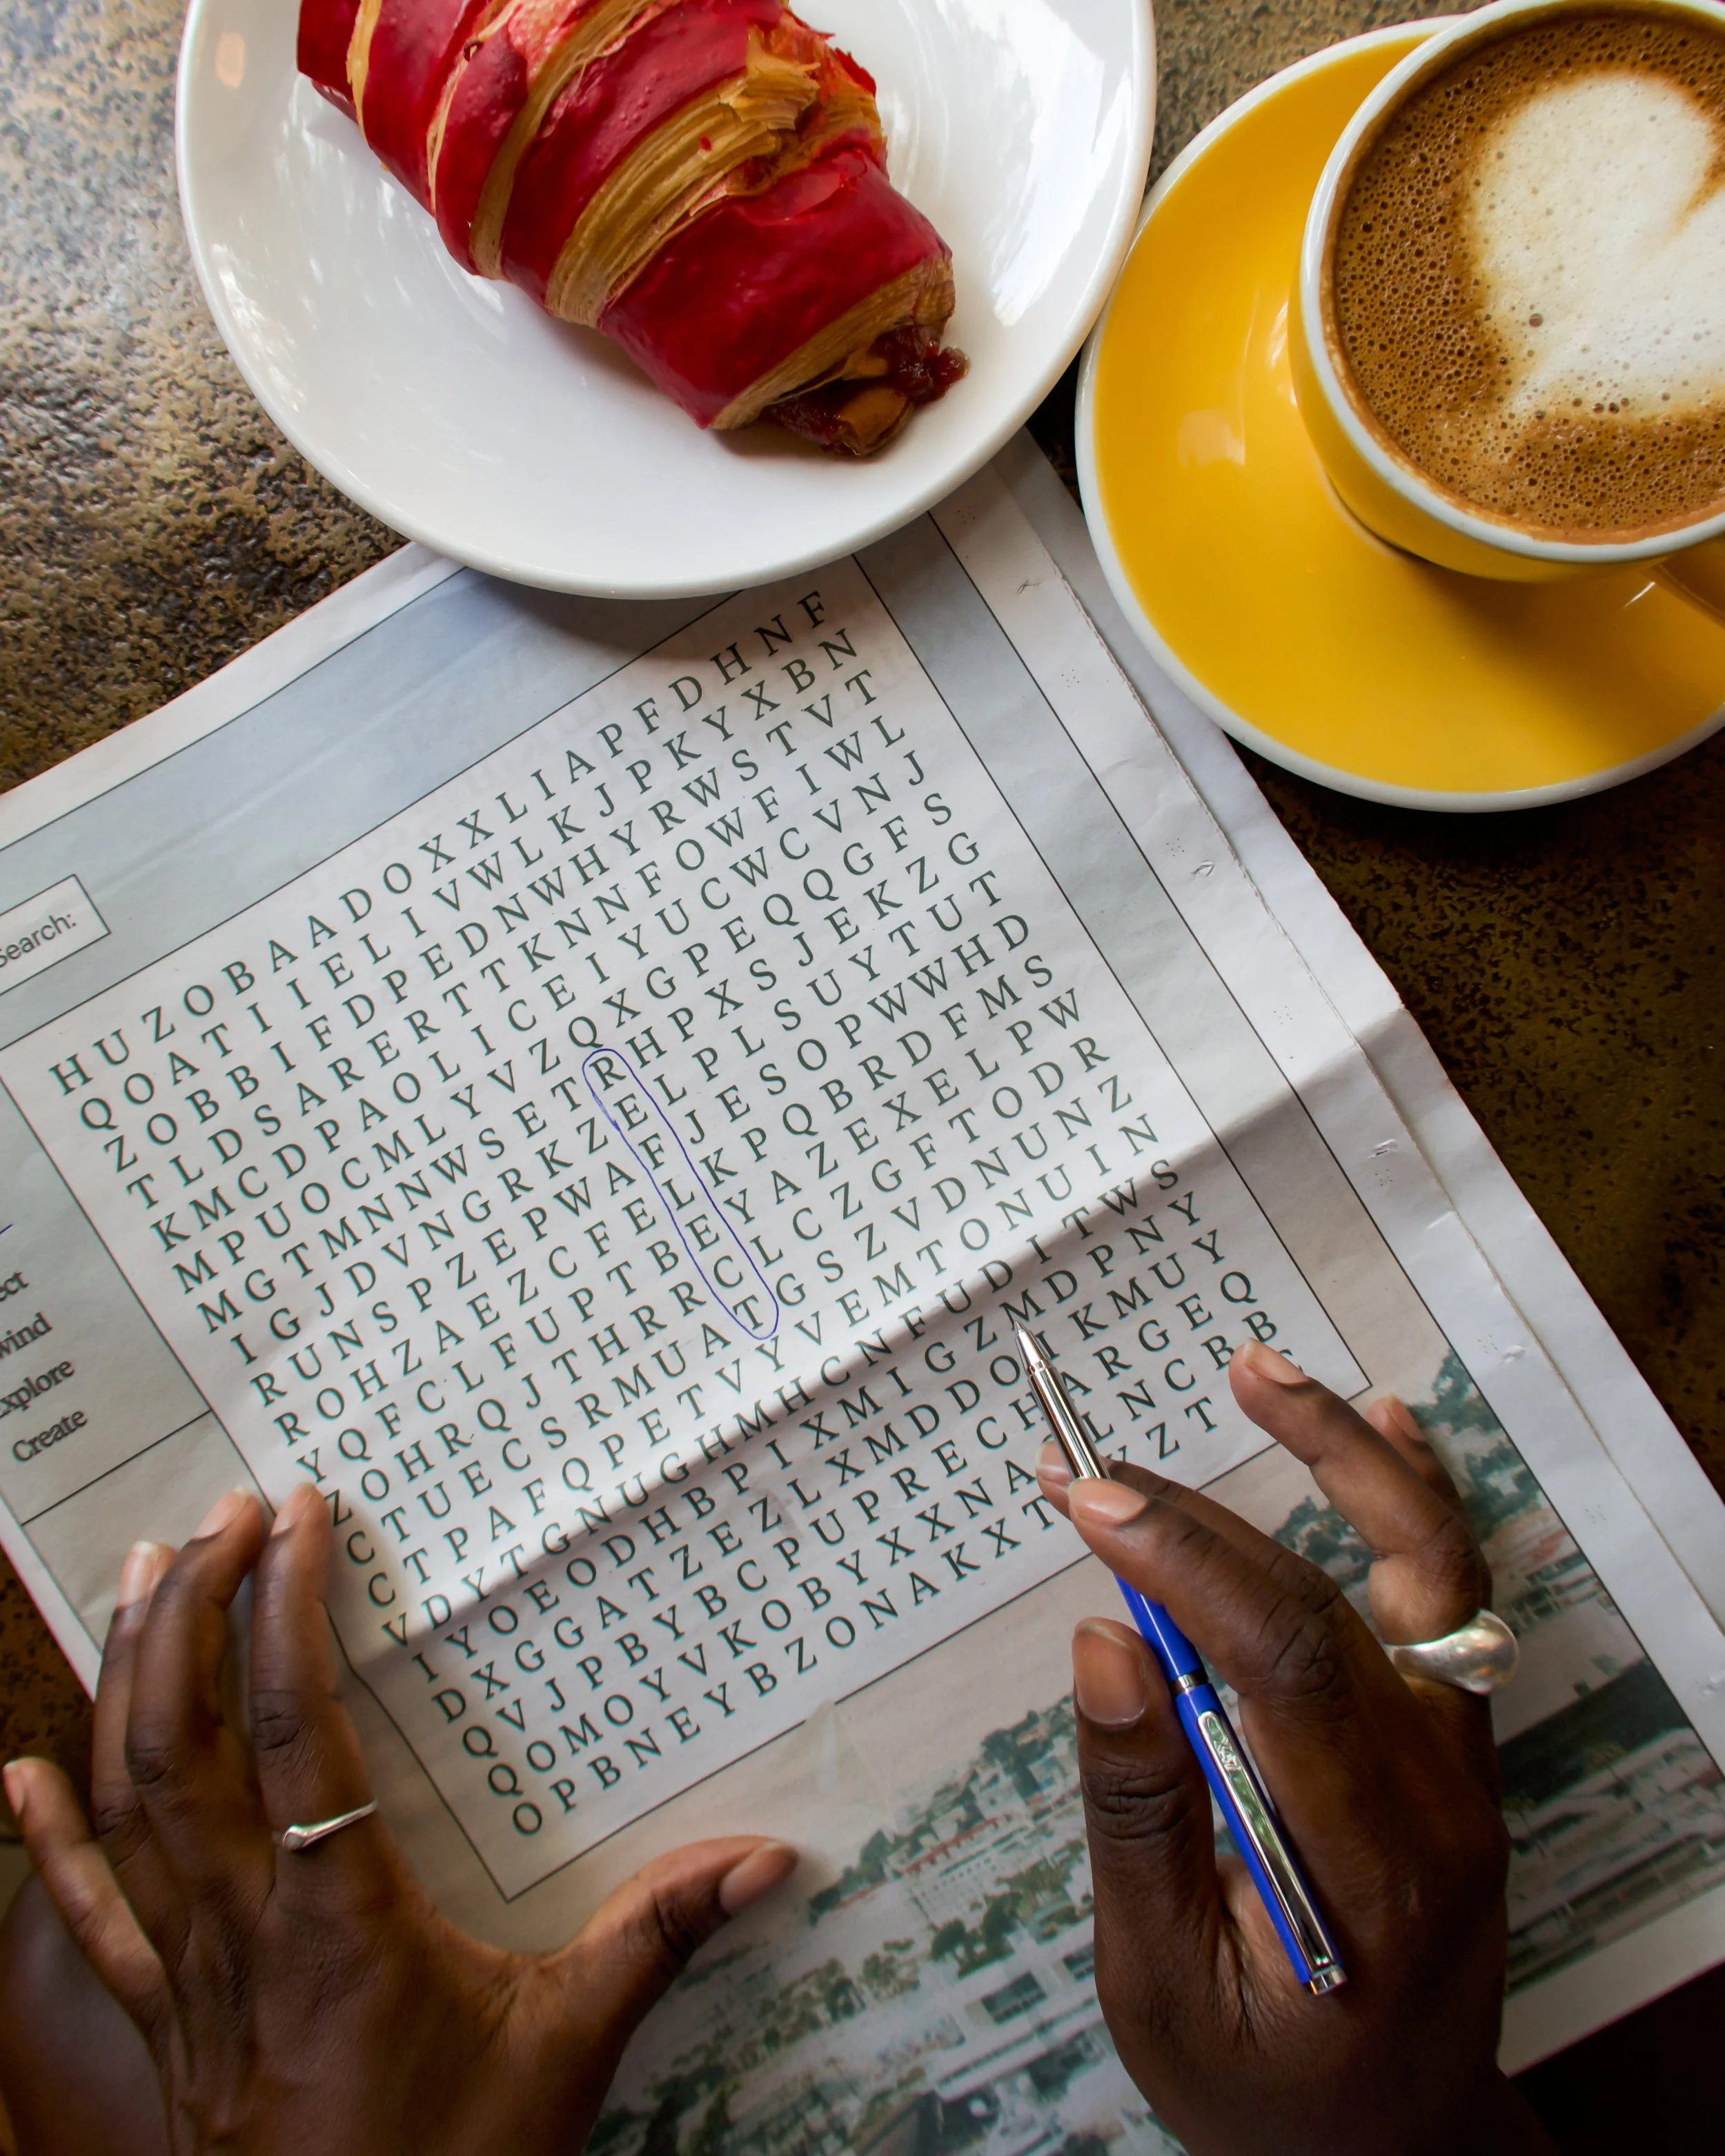 Search:
ect
wind
xplore
Create
H U Z O B A A D O X X L I A P F D H N F
Q O A T I I E L I V W L K J P K Y X B N
Z O B B I F D P E D N W H Y R W S T V T
T L D S A R E R T T K N N F O W F I W L
K M C D P A O L I C E I Y U C W C V N J
M P U O C M L Y V Z Q X G P E Q Q G F S
M G T M N N W S E T R H P X S J E K Z G
I G J D V N G R K Z E L P L S U Y T U T
R U N S P Z E P W A F J E S O P W W H D
R O H Z A E Z C F E L K P Q B R D F M S
Y Q F C L F U P T B E Y A Z E X E L P W
Z O H R Q J T H R R C L C Z G F T O D R
C T U E C S R M U A T G S Z V D N U N Z
C T P A F Q P E T V Y V E M T O N U I N
V D Y T G N U G H M H C N F U D I T W S
I Y O E O D H B P I X M I G Z M D P N Y
D X G G A T Z E Z L X M D D O I K M U Y
Q V J P B Y B C P U P R E C H A R G E Q
Q O M O Y V K O B Y X X N A L N C B B
O P B N E Y B Z O N A K X T Z T